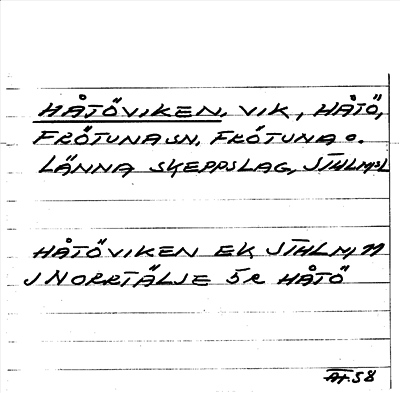 HÅTÖVIKEN, VIK, HÅTÖ,
FRÖTUNA SN, FRÖTUNA O.
LÄNNA SKEPPSLAG, STHLMSL
HÅTÖVIKEN EK STHLM 11
J NORRTÄLJE 5R HÅTÖ
AT.58